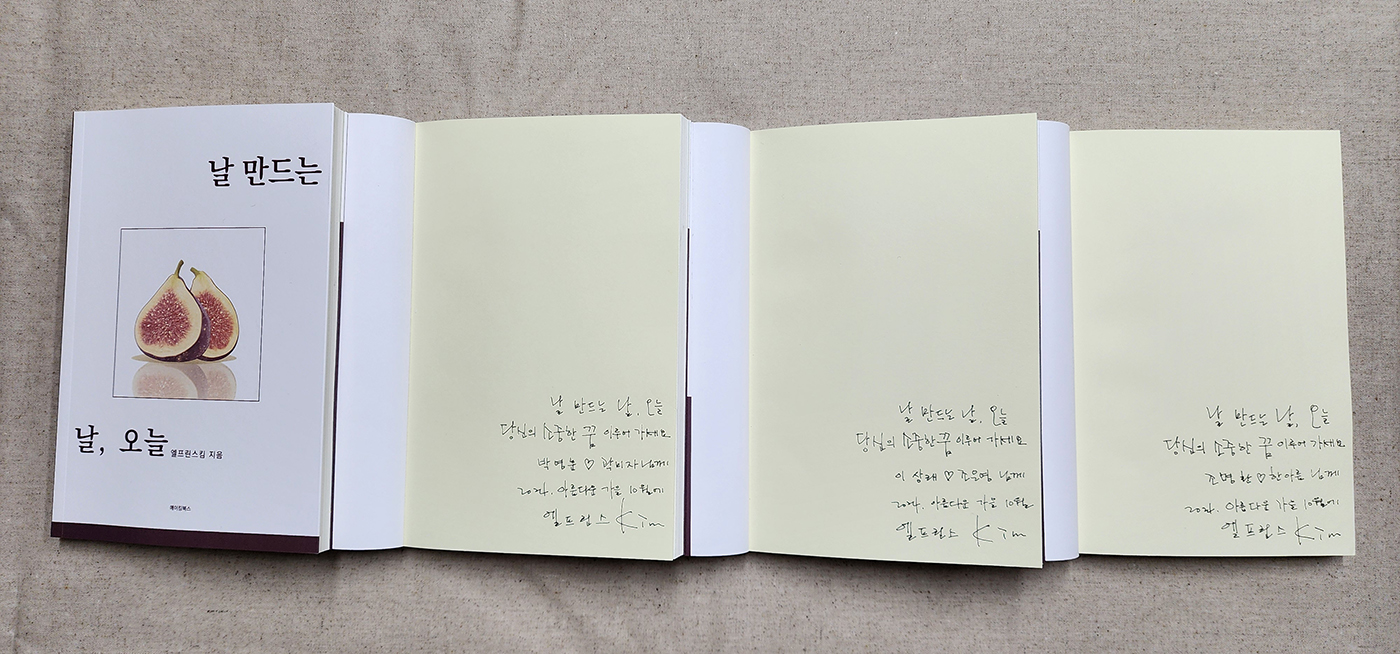 날 만드는
날, 오늘
엘프린스킴 지음
메이킹북스
날 만드는 날, 오늘
당신의 소중한 꿈 이루어 가세요
박영문 ♡ 곽비자 님께
2024. 아름다운 가을 10월에
엘프린스 Kim
날 만드는 날, 오늘
당신의 소중한 꿈 이루어 가세요
이상래 ♡ 조은영 님께
2024. 아름다운 가을 10월에
엘프린스 Kim
날 만드는 날, 오늘
당신의 소중한 꿈 이루어 가세요
조명환 ♡ 한아름 님께
2024. 아름다운 가을 10월에
엘프린스 Kim